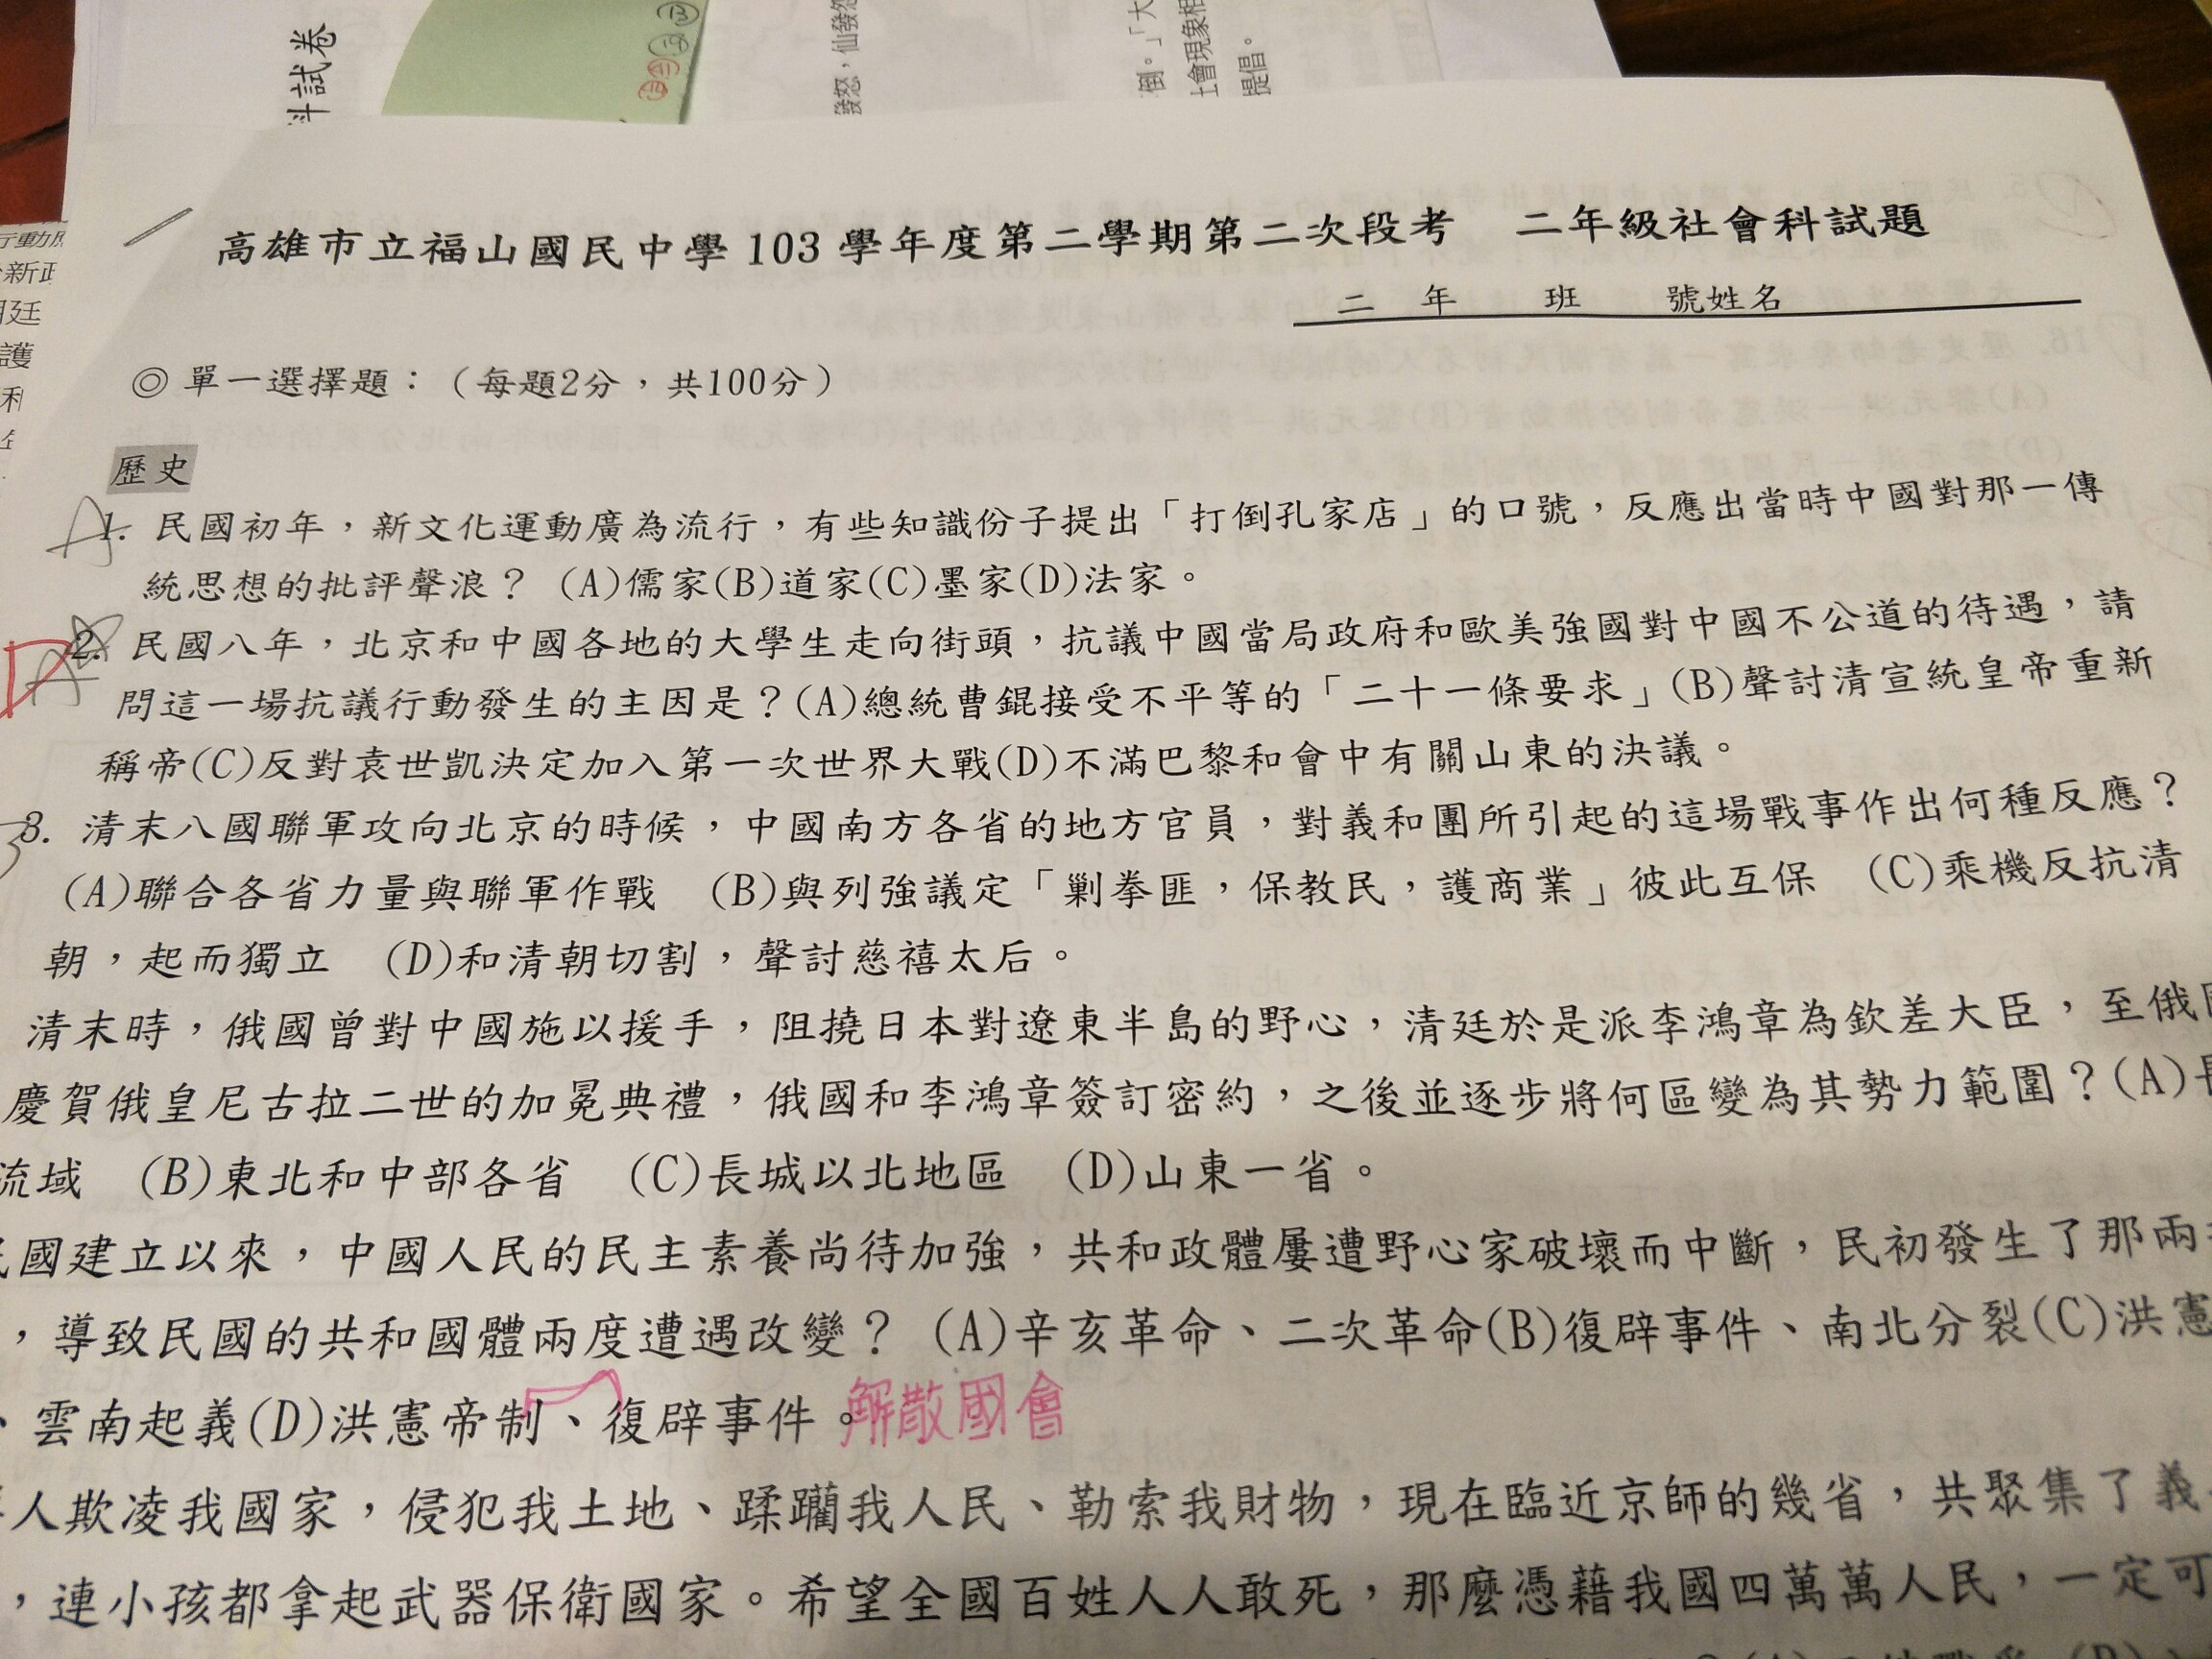 斗試卷
發怒，仙發怒
倒。」「大
會現象相
提倡。
高雄市立福山國民中學 103 學年度第二學期第二次段考 二年級社會科試題
二 年 班 號姓名
◎ 單一選擇題：（每題2分，共100分）
歷史
A
1. 民國初年，新文化運動廣為流行，有些知識份子提出「打倒孔家店」的口號，反應出當時中國對那一傳
統思想的批評聲浪？ (A)儒家(B)道家(C)墨家(D)法家。
D
2. 民國八年，北京和中國各地的大學生走向街頭，抗議中國當局政府和歐美強國對中國不公道的待遇，請
問這一場抗議行動發生的主因是？(A)總統曹錕接受不平等的「二十一條要求」(B)聲討清宣統皇帝重新
稱帝(C)反對袁世凱決定加入第一次世界大戰(D)不滿巴黎和會中有關山東的決議。
3. 清末八國聯軍攻向北京的時候，中國南方各省的地方官員，對義和團所引起的這場戰事作出何種反應？
(A)聯合各省力量與聯軍作戰 (B)與列強議定「剿拳匪，保教民，護商業」彼此互保 (C)乘機反抗清
朝，起而獨立 (D)和清朝切割，聲討慈禧太后。
清末時，俄國曾對中國施以援手，阻撓日本對遼東半島的野心，清廷於是派李鴻章為欽差大臣，至俄國
慶賀俄皇尼古拉二世的加冕典禮，俄國和李鴻章簽訂密約，之後並逐步將何區變為其勢力範圍？(A)長
流域 (B)東北和中部各省 (C)長城以北地區 (D)山東一省。
民國建立以來，中國人民的民主素養尚待加強，共和政體屢遭野心家破壞而中斷，民初發生了那兩
，導致民國的共和國體兩度遭遇改變？ (A)辛亥革命、二次革命(B)復辟事件、南北分裂(C)洪憲
、雲南起義(D)洪憲帝制、復辟事件。解散國會
人欺凌我國家，侵犯我土地、蹂躪我人民、勒索我財物，現在臨近京師的幾省，共聚集了義
，連小孩都拿起武器保衛國家。希望全國百姓人人敢死，那麼憑藉我國四萬萬人民，一定可